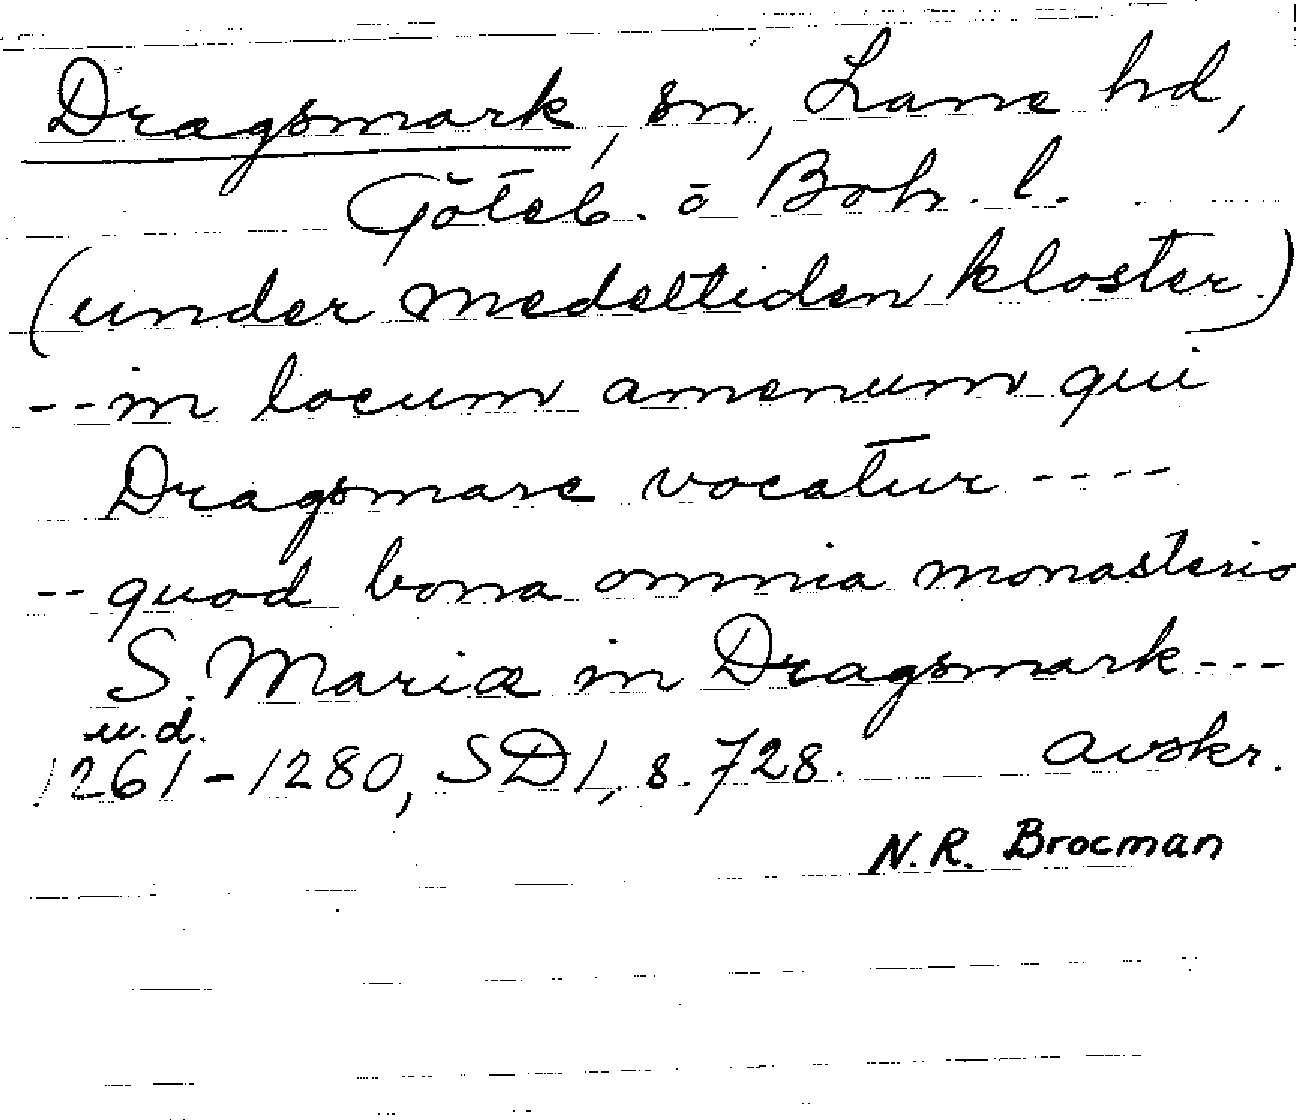 Dragsmark, sn, Lane hd,
Göteb. o Boh. l.
(under medeltiden kloster)
--in locum amenum qui
Dragsmarc vocatur ----
--quod bona omnia monasterio
S. Mariæ in Dragsmark---
u.d.
1261-1280, SD1, s. 728. avskr.
N.R. Brocman